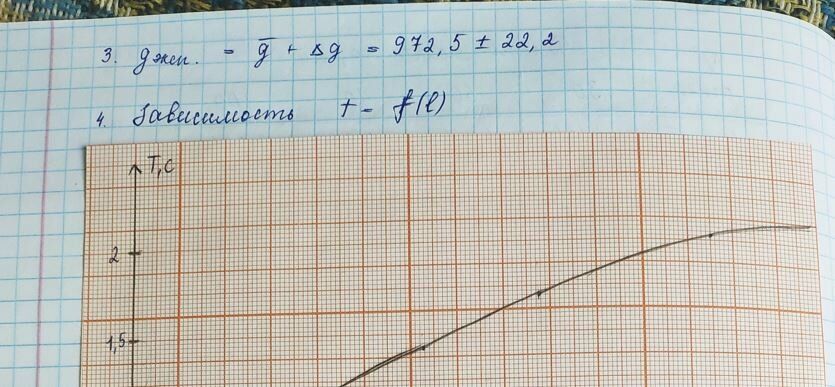 3. gэксп. = g̅ + Δg = 972,5 ± 22,2
4. Зависимость T = f(l)
T,c
2
1,5